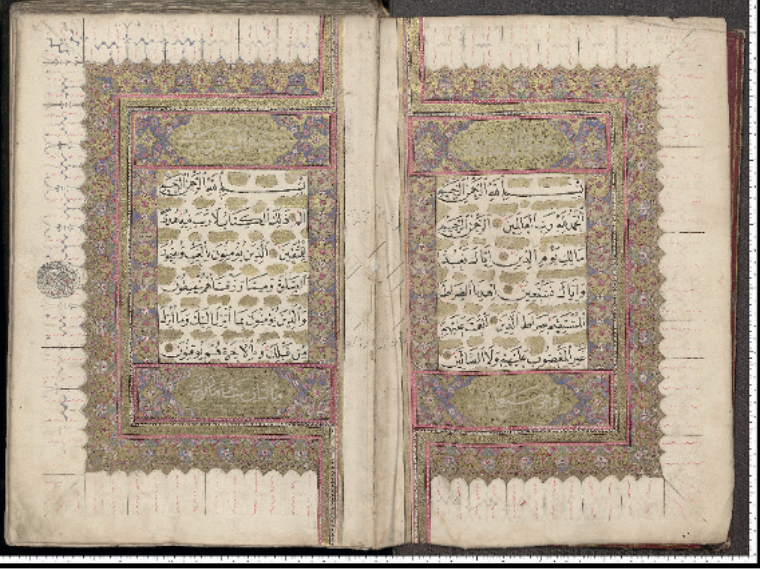 بسم الله الرحمن الرحيم
الحمد لله رب العالمين الرحمن الرحيم
مالك يوم الدين اياك نعبد
واياك نستعين اهدنا الصراط
المستقيم صراط الذين انعمت عليهم
غير المغضوب عليهم ولا الضالين
بسم الله الرحمن الرحيم
الم ذلك الكتاب لا ريب فيه هدى
للمتقين الذين يؤمنون بالغيب ويقيمون
الصلوة ومما رزقناهم ينفقون
والذين يؤمنون بما انزل اليك وما انزل
من قبلك وبالاخرة هم يوقنون